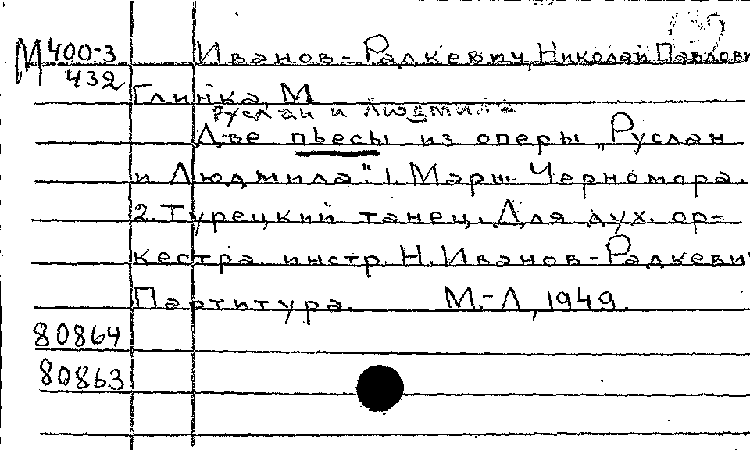 М400-3 Иванов-Радкевич, Николай Павлови
432
Глинка, М.
Руслан и Людмила
Две пьесы из оперы „Руслан
и Людмила": 1. Марш Черномора.
2. Турецкий танец. Для дух. ор-
кестра инстр. Н. Иванов-Радкеви
Партитура. М.-Л., 1949.
80864
80863